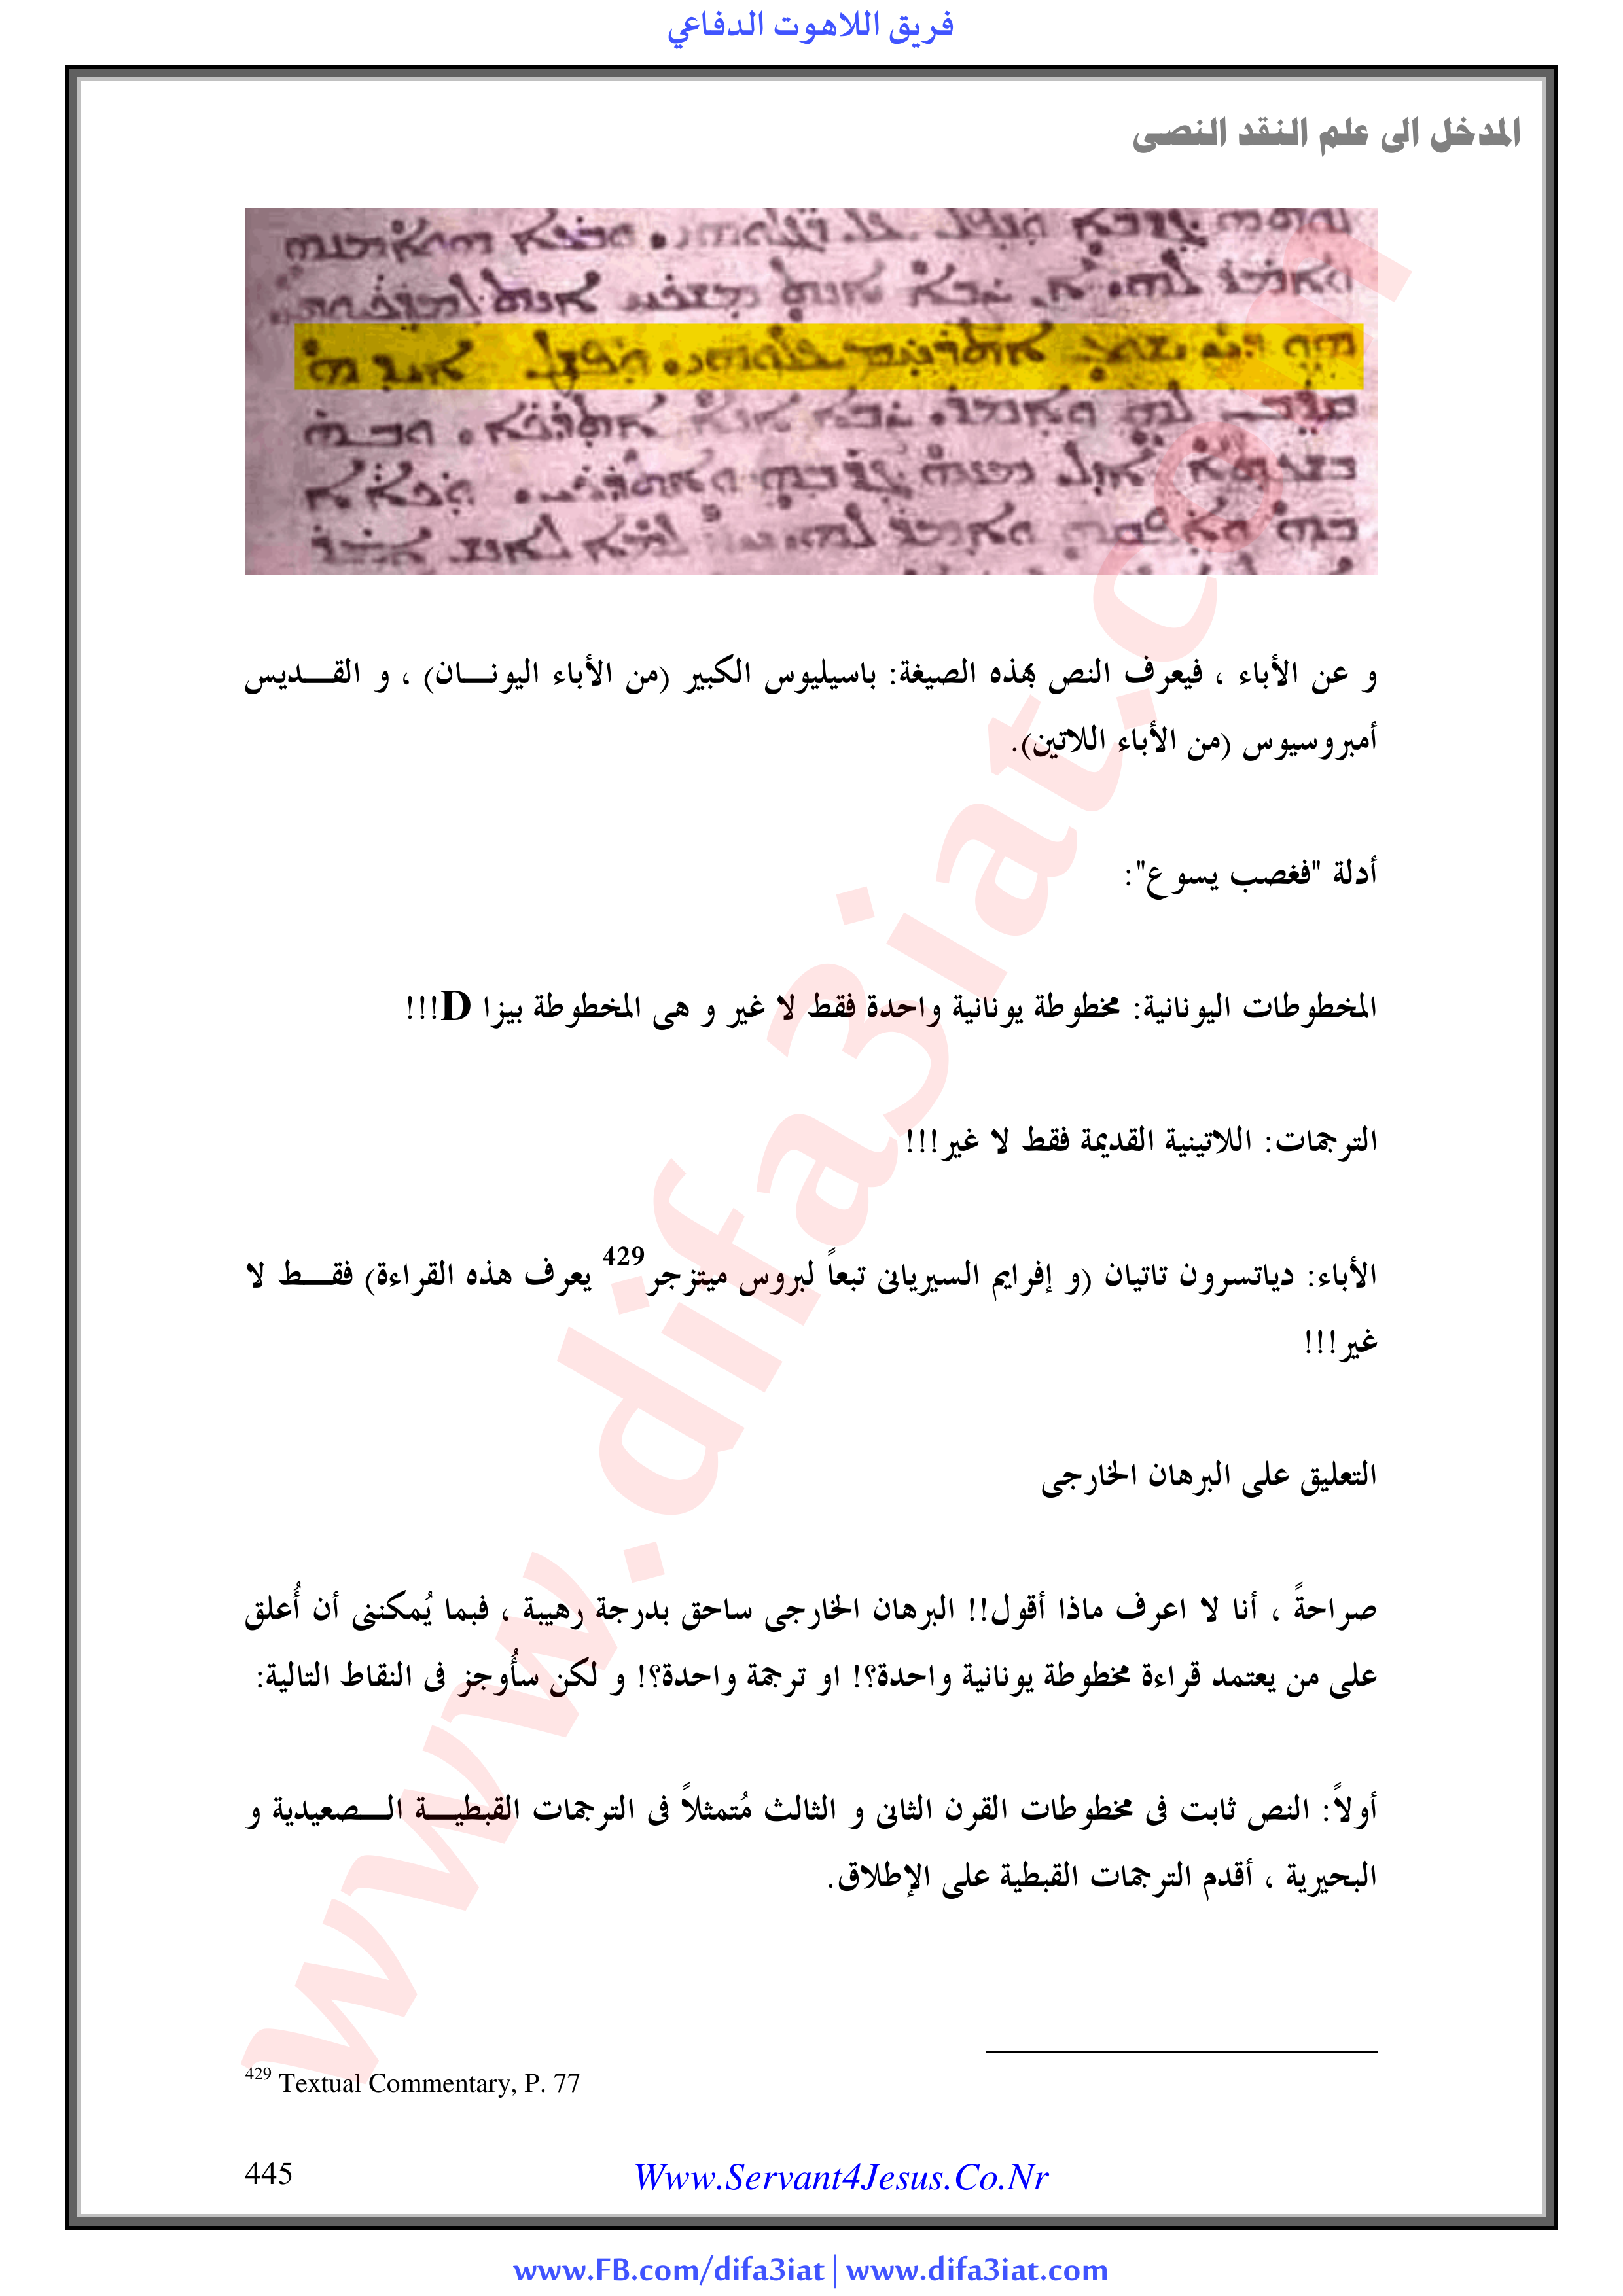 فريق اللاهوت الدفاعي
المدخل الى علم النقد النصى
و عن الأباء ، فيعرف النص بهذه الصيغة: باسيليوس الكبير (من الأباء اليونـــان) ، و القـــديس
أمبروسيوس (من الأباء اللاتين).
أدلة "فغصب يسوع":
المخطوطات اليونانية: مخطوطة يونانية واحدة فقط لا غير و هى المخطوطة بيزا D!!!
الترجمات: اللاتينية القديمة فقط لا غير!!!
الأباء: دياتسرون تاتيان (و إفرايم السيريانى تبعاً لبروس ميتزجر429 يعرف هذه القراءة) فقـــط لا
غير!!!
التعليق على البرهان الخارجى
صراحةً ، أنا لا اعرف ماذا أقول!! البرهان الخارجى ساحق بدرجة رهيبة ، فبما يُمكننى أن أُعلق
على من يعتمد قراءة مخطوطة يونانية واحدة؟! او ترجمة واحدة؟! و لكن سأُوجز فى النقاط التالية:
أولاً: النص ثابت فى مخطوطات القرن الثانى و الثالث مُتمثلاً فى الترجمات القبطيـــة الـــصعيدية و
البحيرية ، أقدم الترجمات القبطية على الإطلاق.
429 Textual Commentary, P. 77
445
Www.Servant4Jesus.Co.Nr
www.FB.com/difa3iat | www.difa3iat.com
www.difa3iat.com